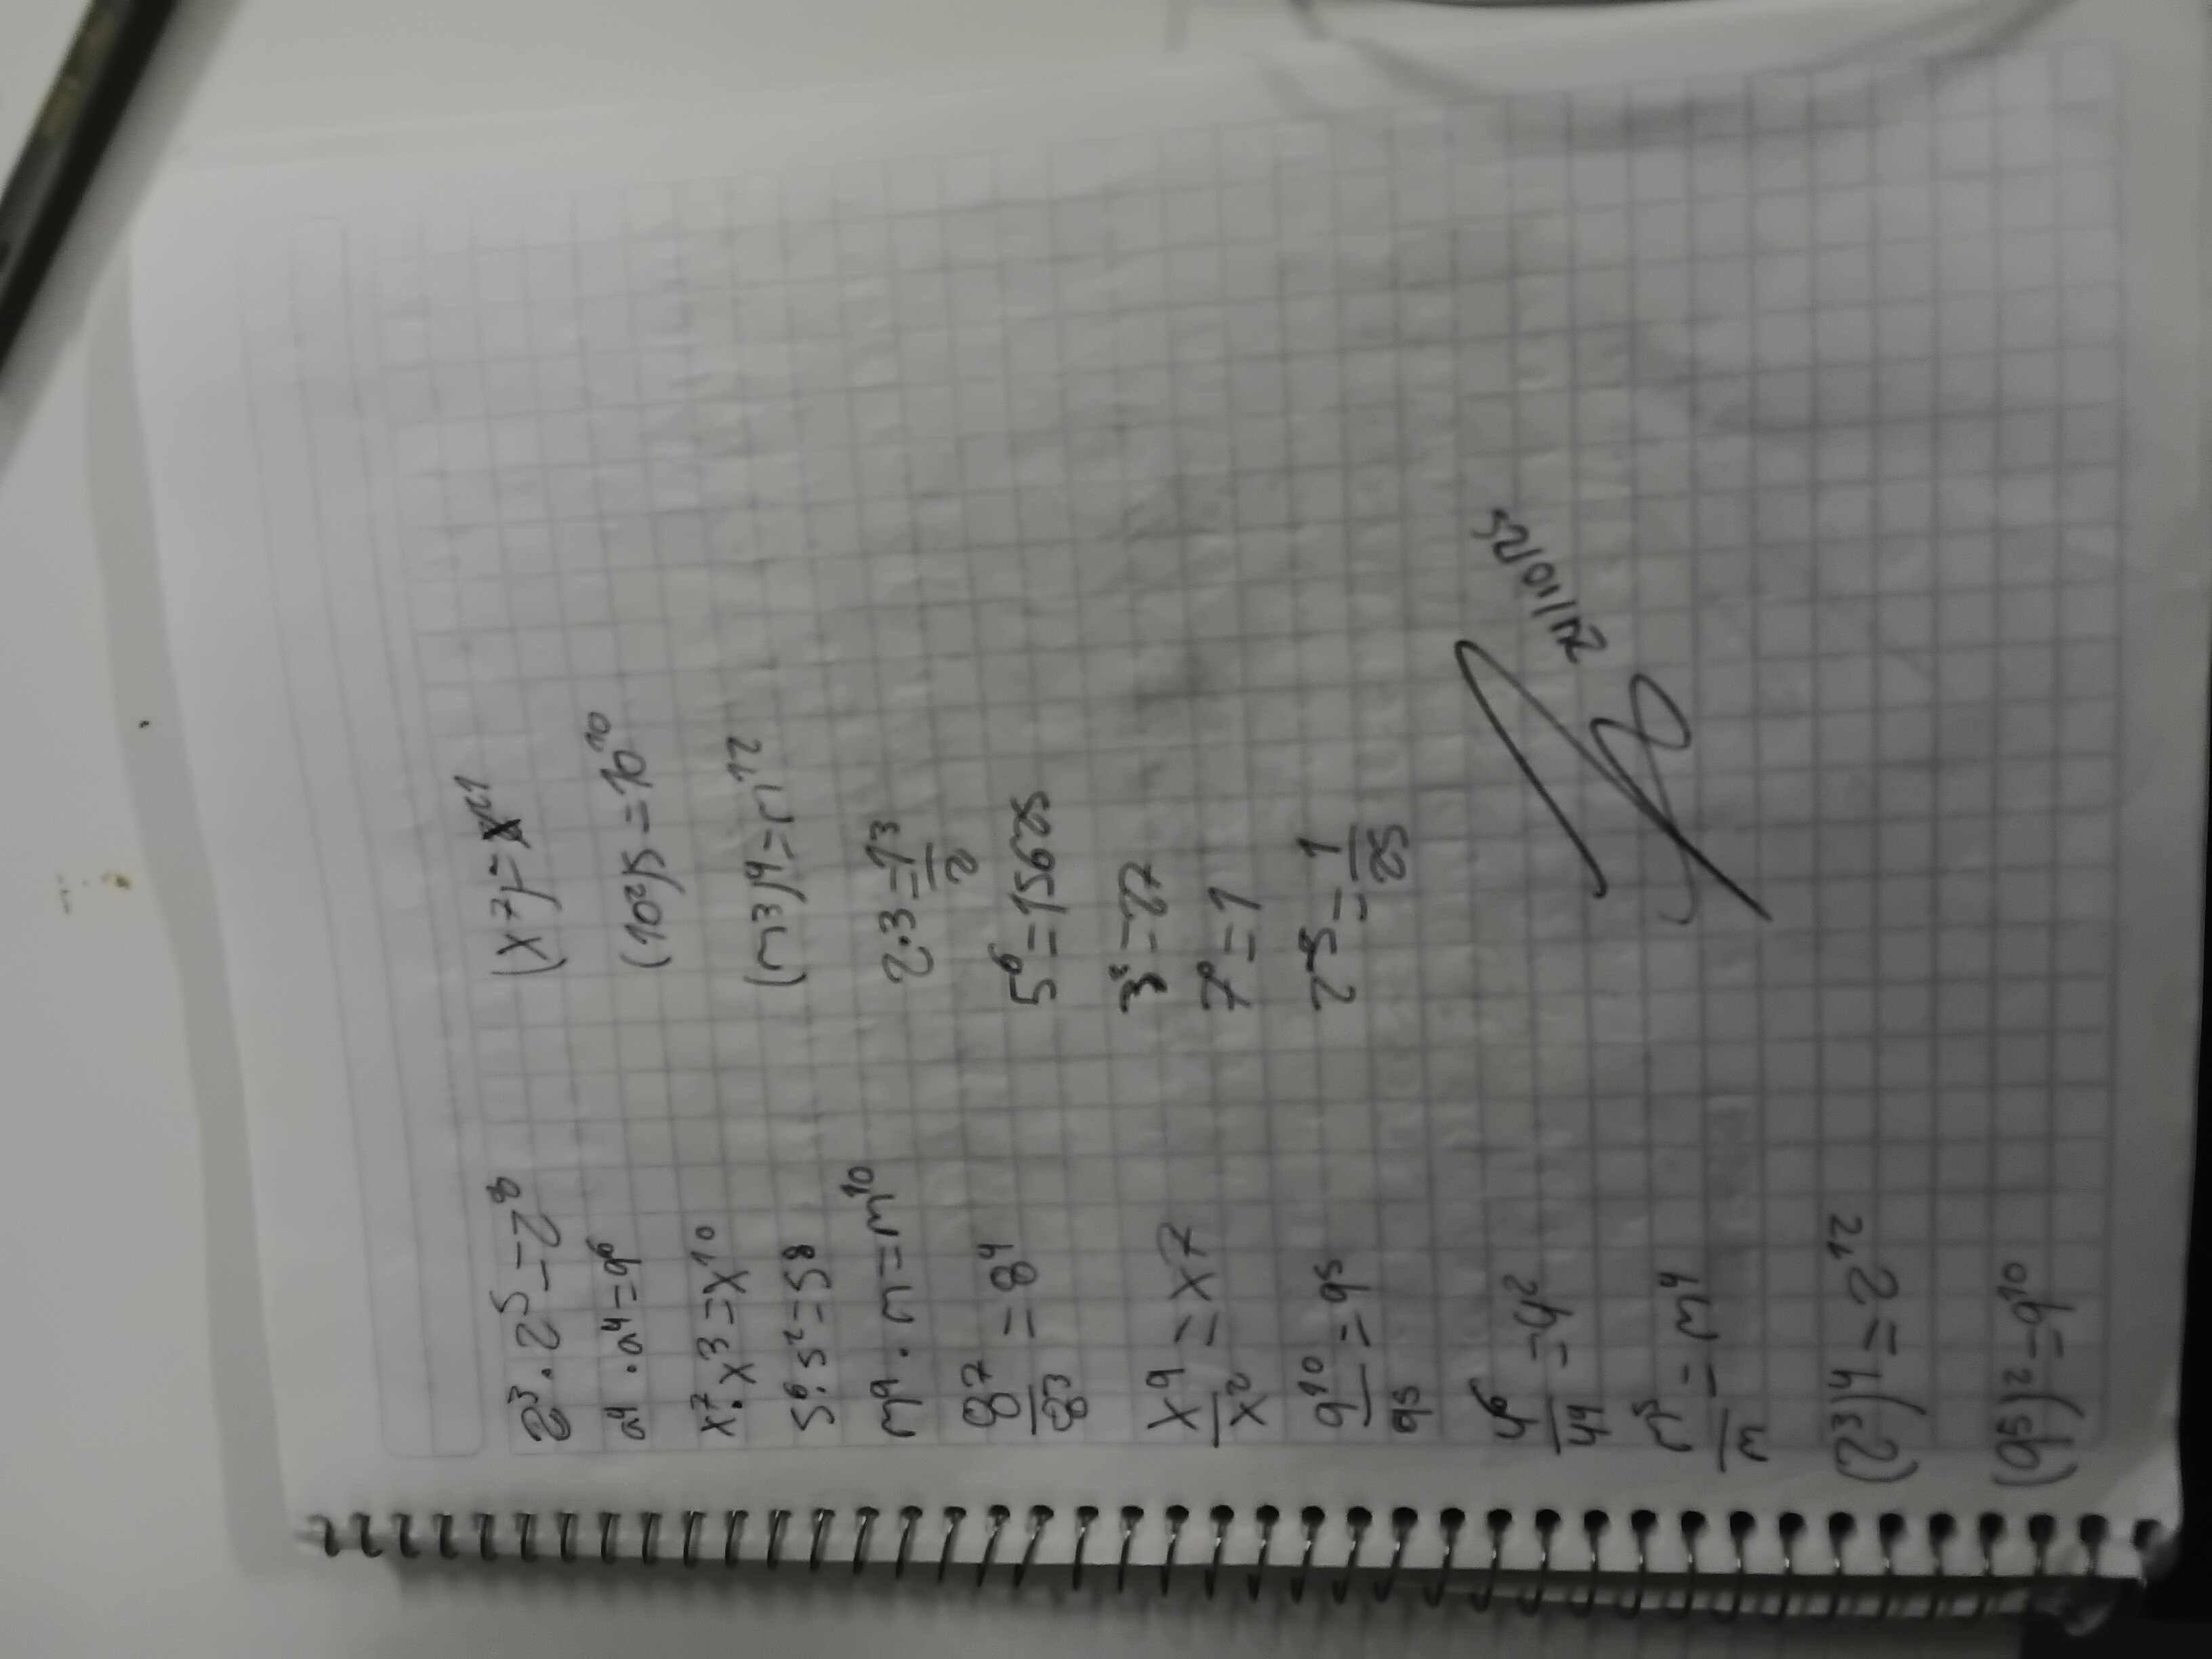 2³ · 25 = 2⁸
a⁴ · a⁴ = a⁶
x⁷ · x3 = x¹⁰
5⁶ · 5² = 5⁸
m⁹ · m = m¹⁰
8⁷/8³ = 8⁴
x9/x² = x7
a¹⁰/a5 = a⁵
4⁶/44 = 4²
m⁵/m = m⁴
(23)4 = 2¹²
(a5)2 = a¹⁰
(x7)= x21
(10²)5 = 10¹⁰
(m3)4 = m12
2·3 = 13/2
5⁶ = 15625
3³ = 27
7⁰ = 1
2⁻5 = 1/52
21/10/25